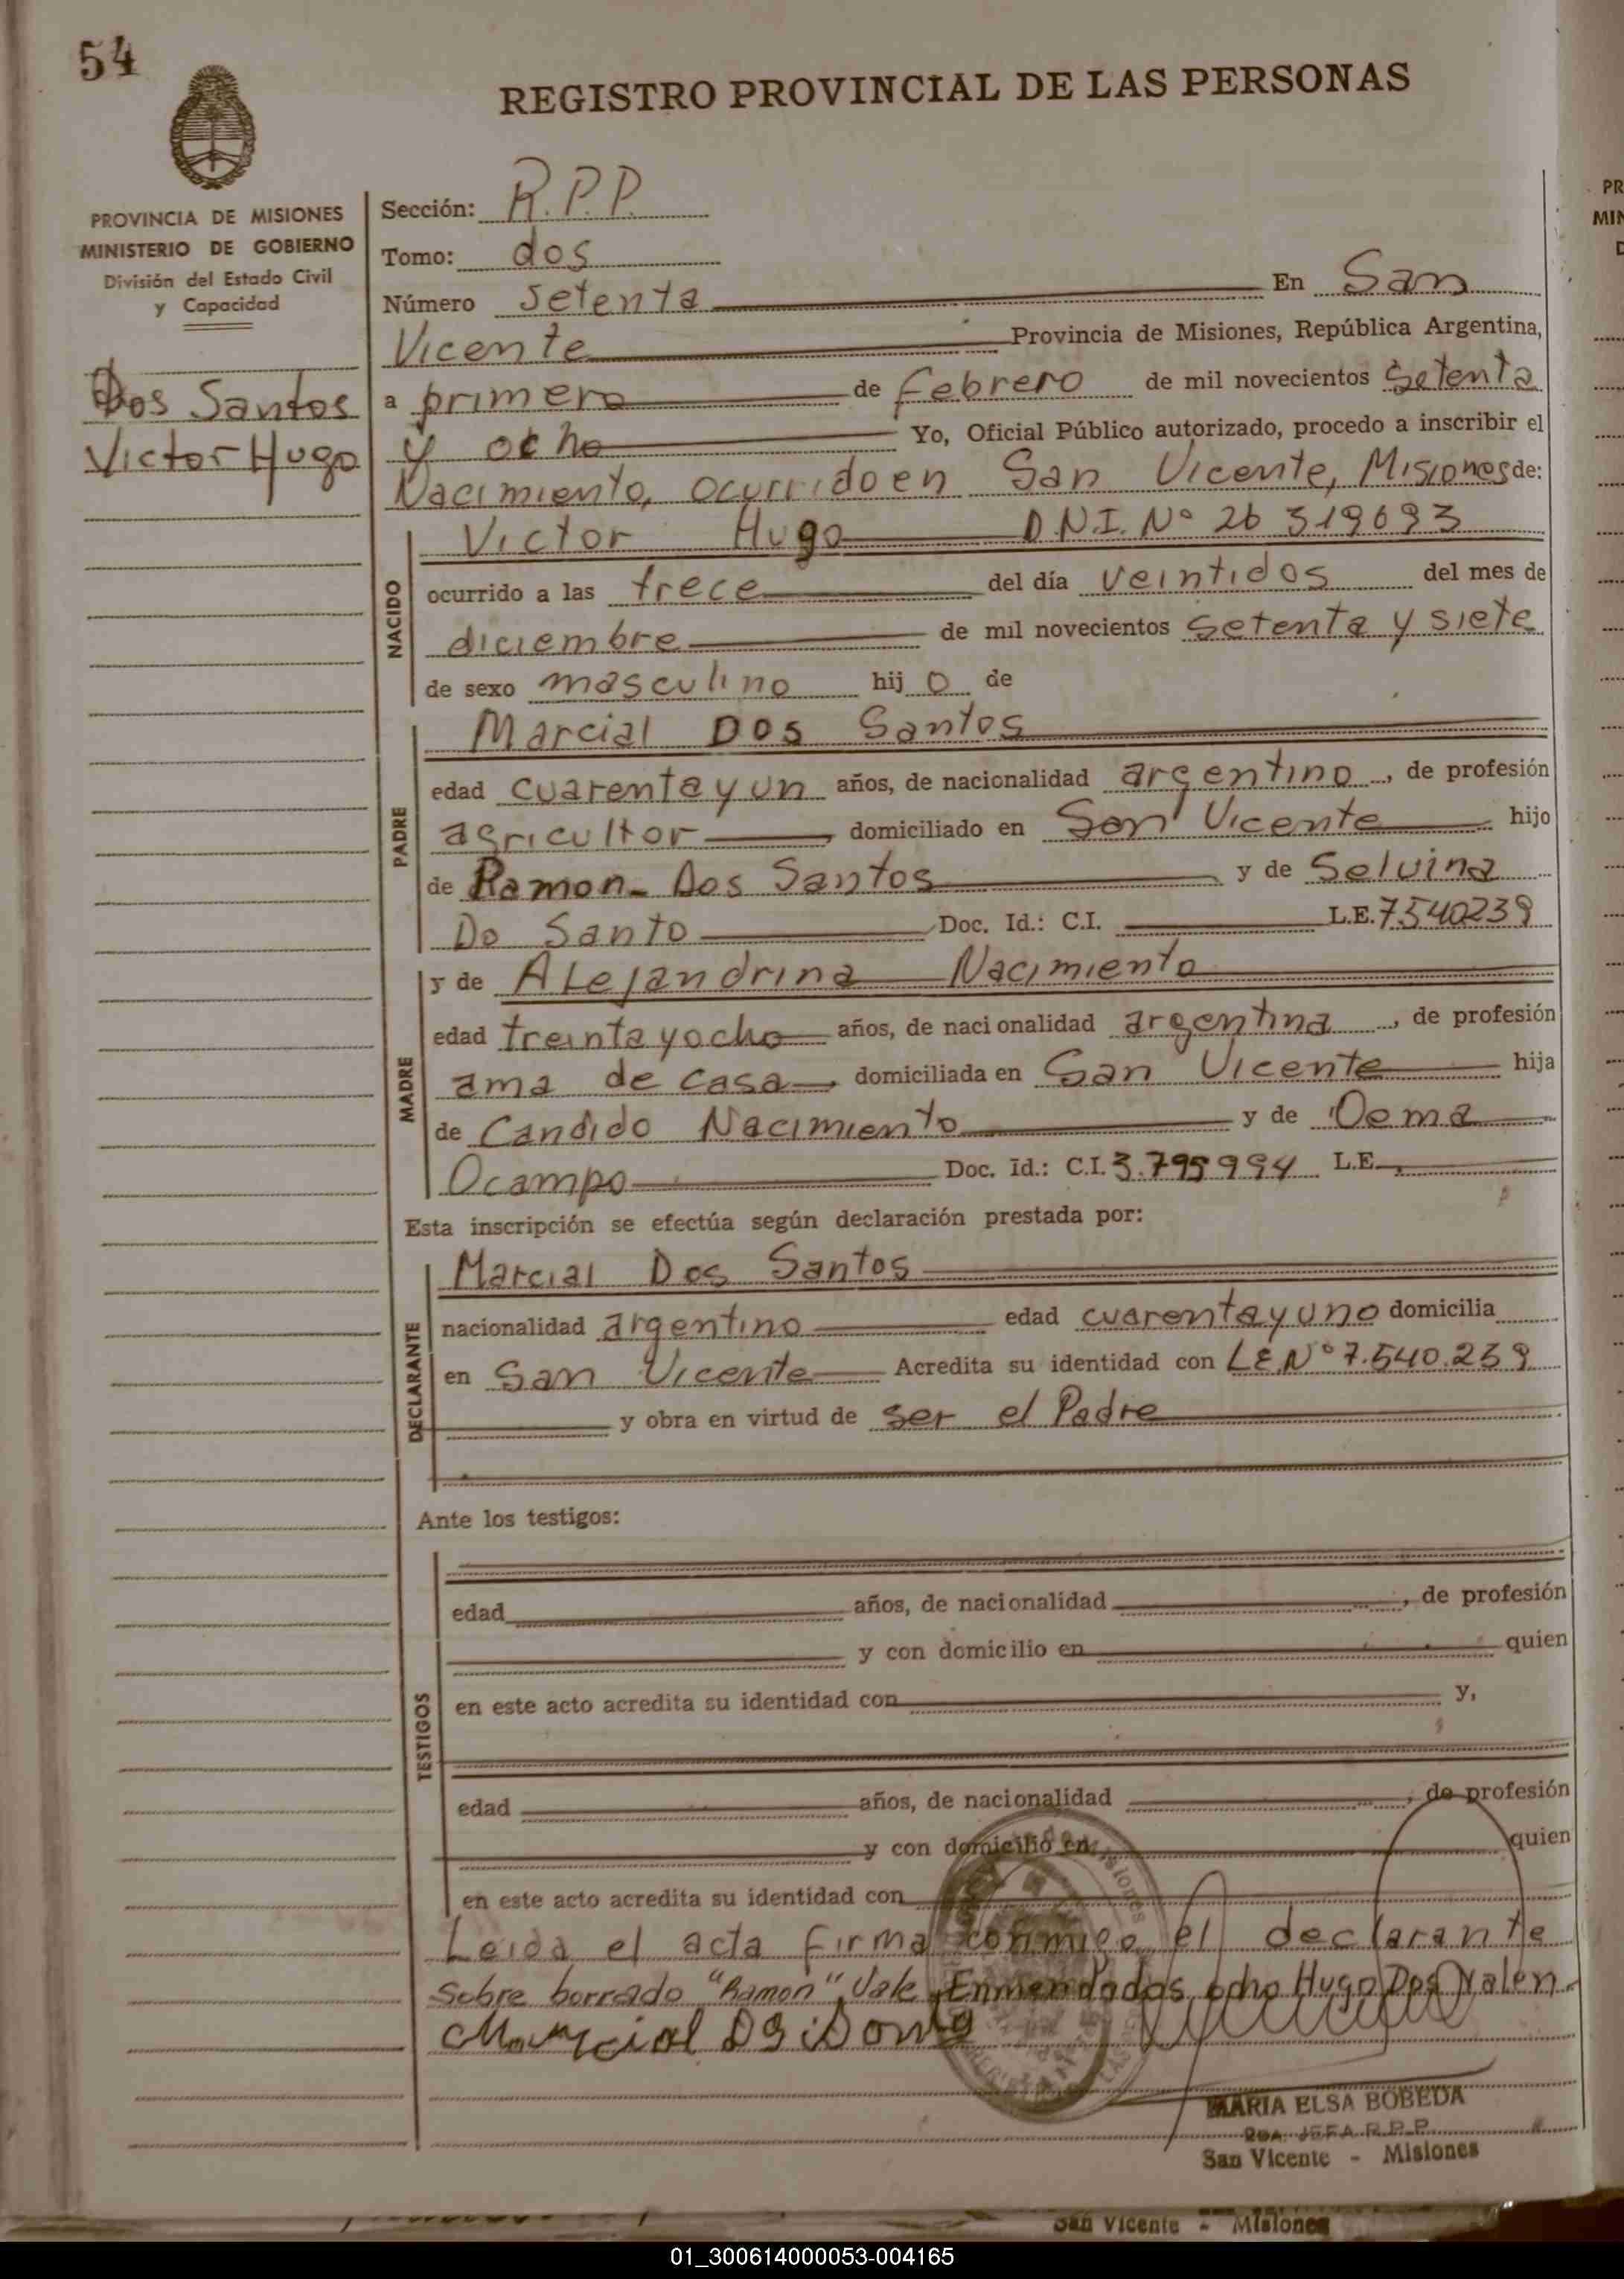 54
REGISTRO PROVINCIAL DE LAS PERSONAS
PROVINCIA DE MISIONES
MINISTERIO DE GOBIERNO
División del Estado Civil
y Capacidad
Dos Santos
Victor Hugo
Sección: R.P.P.
Tomo: dos
Número setenta En San
Vicente Provincia de Misiones, República Argentina,
a primero de febrero de mil novecientos setenta
y ocho Yo, Oficial Público autorizado, procedo a inscribir el
Nacimiento, ocurrido en San Vicente, Misiones de:
NACIDO
Victor Hugo D.N.I. Nº 26 319693
ocurrido a las trece del día veintidos del mes de
diciembre de mil novecientos setenta y siete
de sexo masculino hijo de
PADRE
Marcial Dos Santos
edad cuarenta y un años, de nacionalidad argentino, de profesión
agricultor, domiciliado en San Vicente hijo
de Ramon Dos Santos y de Selvina
Do Santo Doc. Id.: C.I. L.E. 7540239
MADRE
y de Alejandrina Nacimiento
edad treinta y ocho años, de nacionalidad argentina, de profesión
ama de casa, domiciliada en San Vicente hija
de Candido Nacimiento y de Oema
Ocampo Doc. Id.: C.I. 3.795994 L.E.
Esta inscripción se efectúa según declaración prestada por:
DECLARANTE
Marcial Dos Santos
nacionalidad argentino edad cuarenta y uno domicilia
en San Vicente Acredita su identidad con L.E. Nº 7.540.239
y obra en virtud de ser el Padre
Ante los testigos:
TESTIGOS
edad años, de nacionalidad, de profesión
y con domicilio en quien
en este acto acredita su identidad con y,
edad años, de nacionalidad, de profesión
y con domicilio en quien
en este acto acredita su identidad con
Leida el acta firma conmigo el declarante
Sobre borrado "Ramon" Vale, Enmendados, ocho Hugo Dos Valen.
Marcial
MARIA ELSA BOBEDA
JEFA R.P.P.
San Vicente - Misiones
San Vicente - Misiones
01_300614000053-004165